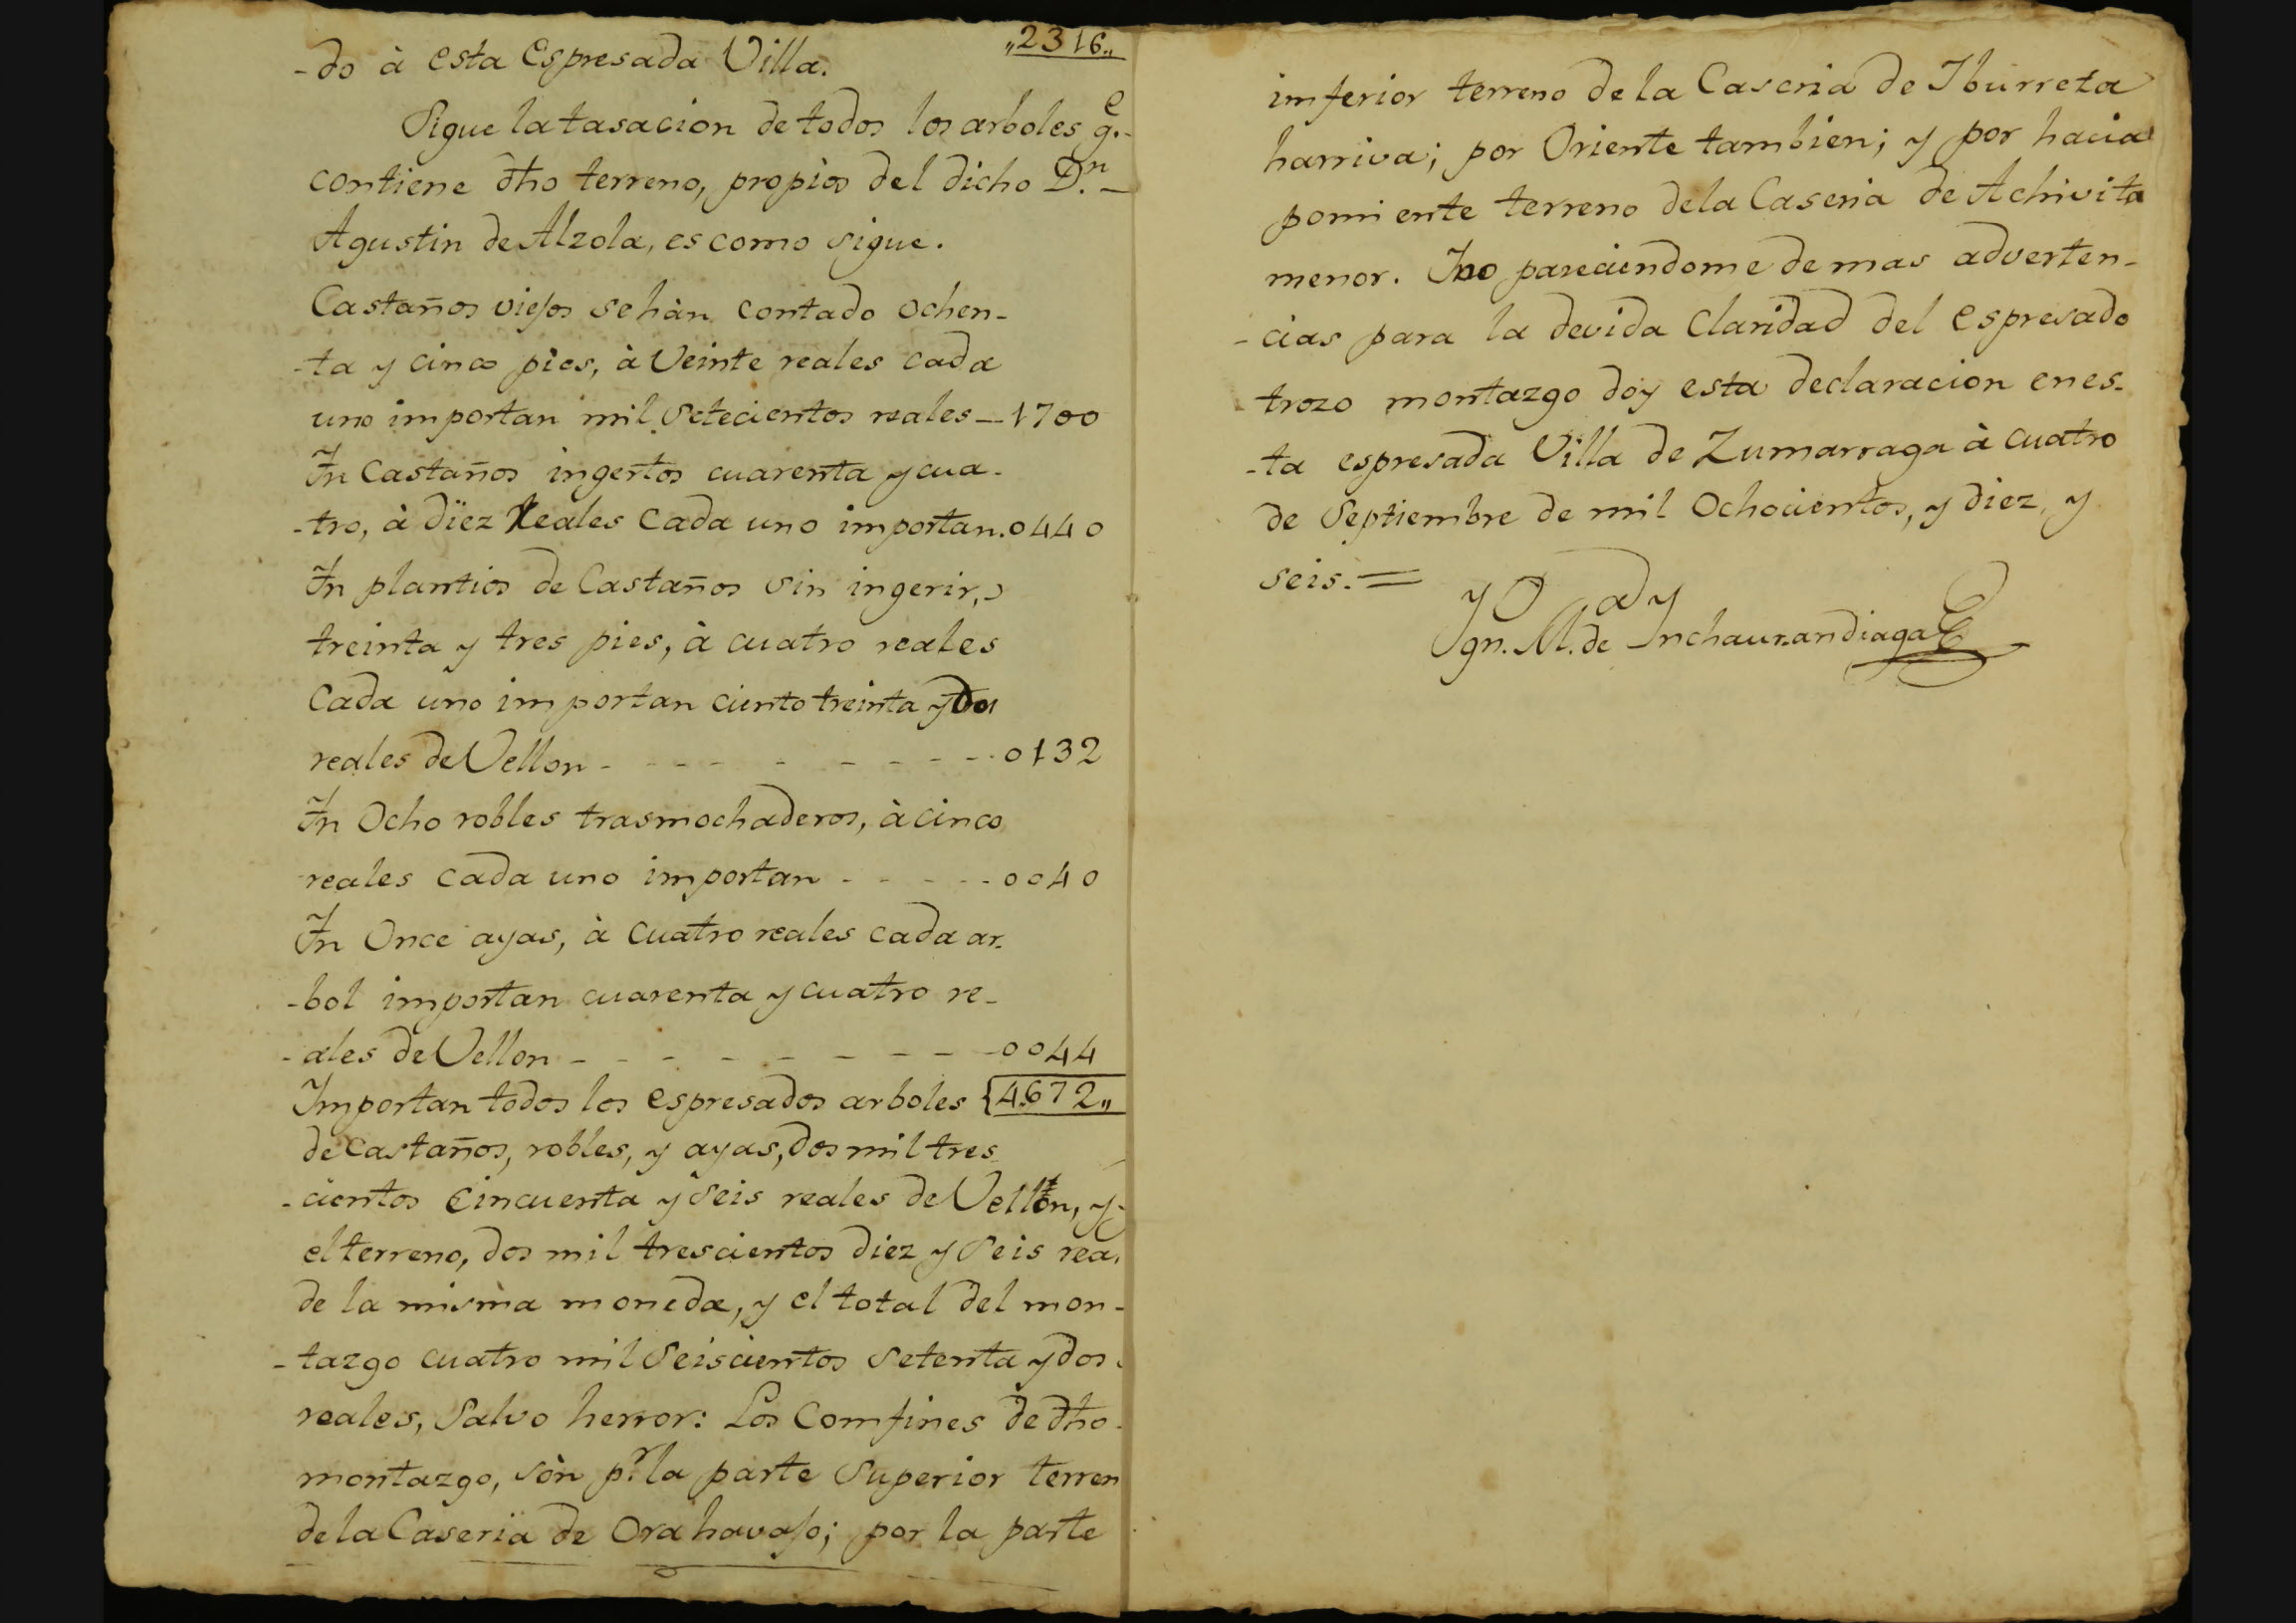 -do à esta Espresada Villa. „2316„
Sigue la tasacion de todos los arboles q.e
contiene dho terreno, propios del dicho D.n
Agustin de Alzola, es como sigue.
Castaños viejos se hàn contado ochen-
-ta y cinco pies, à Veinte reales cada
uno importan mil Setecientos reales - 1700
In Castaños ingertos cuarenta y cua-
-tro, à diez Reales Cada uno importan. 0440
In plantios de Castaños sin ingerir,
treinta y tres pies, à cuatro reales
Cada uno importan ciento treinta y dos
reales de Vellon - - - - - - - - 0132
In Ocho robles trasmochaderos, à cinco
reales cada uno importan - - - - - 0040
In Once ayas, à cuatro reales cada ar-
-bol importan cuarenta y cuatro re-
-ales de Vellon - - - - - - - - 0044
Importan todos los espresados arboles {4672„
de castaños, robles, y ayas, dos mil tres
-cientos Cincuenta y Seis reales de Vellon, y
el terreno, dos mil trescientos diez y Seis rea.
de la misma moneda, y el total del mon-
-tazgo cuatro mil Seiscientos Setenta y dos
reales, Salvo herror: Los Comfines de dho
montazgo, sòn p.r la parte Superior terren
de la Caseria de Orahavajo; por la parte
imferior terreno de la Caseria de Iburreta
harriva; por Oriente tambien; y por hacia
pomiente terreno de la Caseria de Achivita
menor. Y no pareciendome de mas adverten-
-cias para la devida Claridad del espresado
trozo montazgo doy esta declaracion en es-
-ta espresada Villa de Zumarraga à cuatro
de Septiembre de mil Ochocientos, y diez, y
seis. =
Ygn. M. de Inchaurandiaga